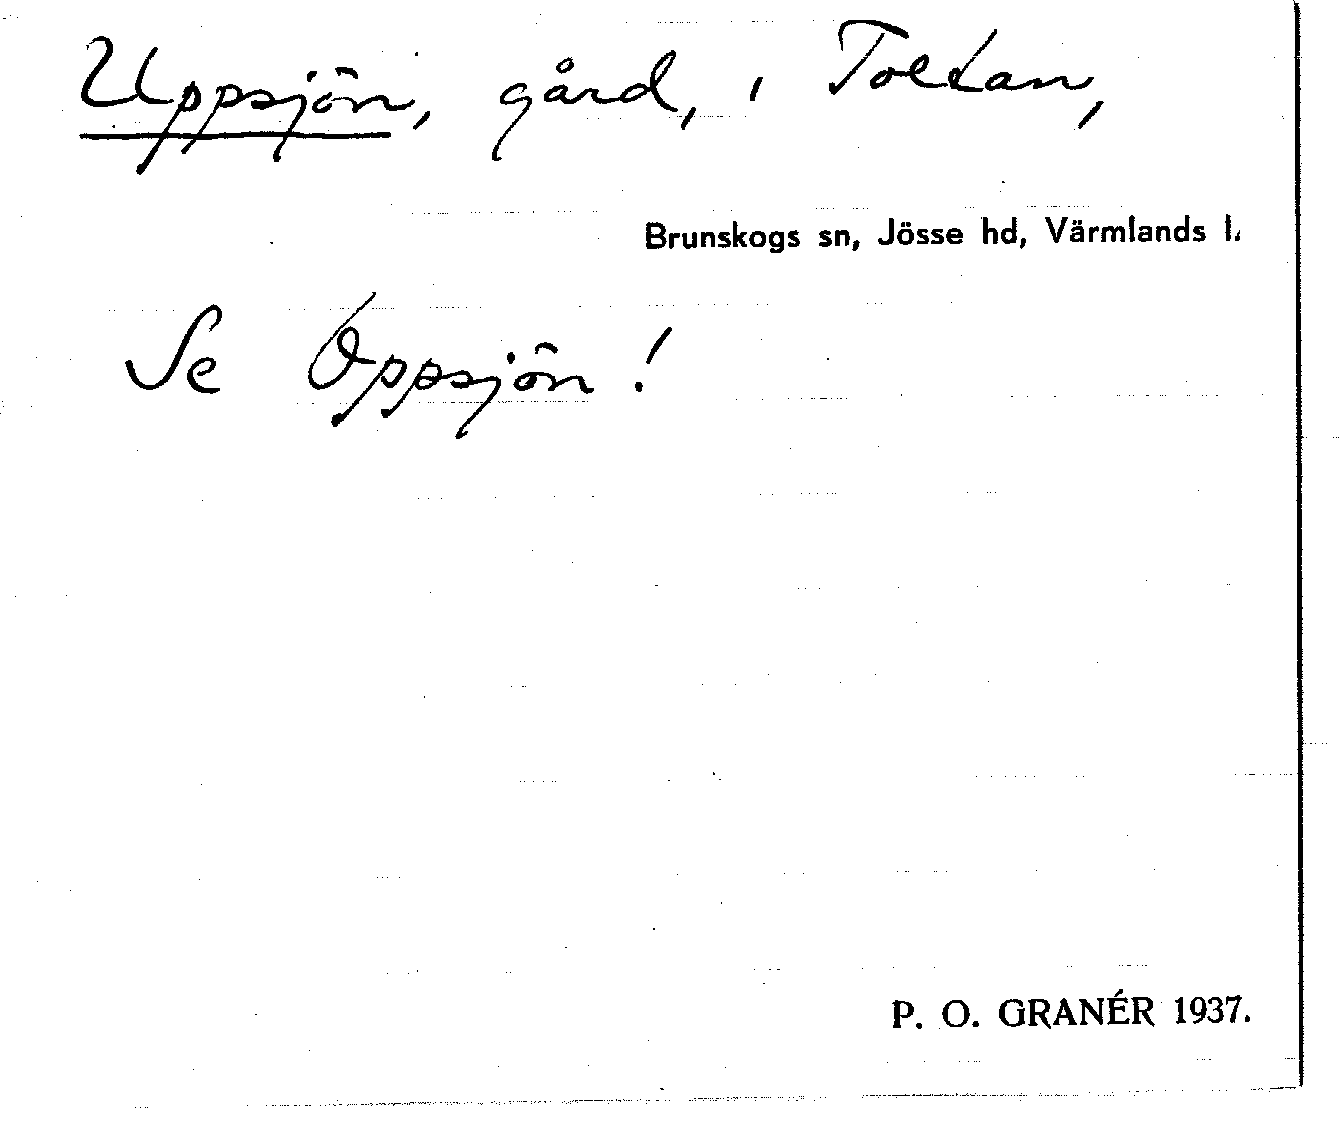 Uppsjön, gård, i Toltan,
Brunskogs sn, Jösse hd, Värmlands l.
Se Oppsjön!
P. O. GRANÉR 1937.